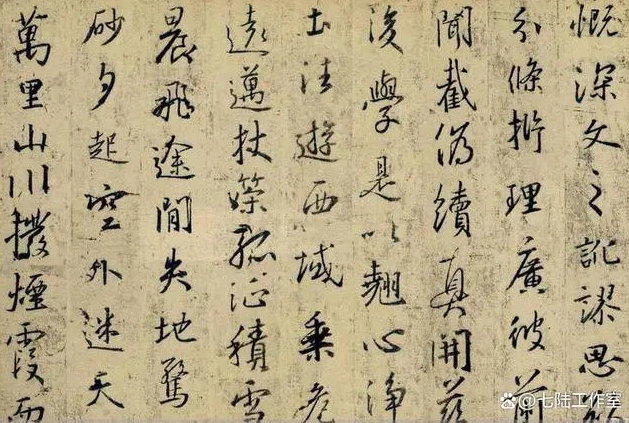 慨深文之訛謬思欲
分條析理廣彼前
聞截偽續真開茲
後學是以翹心淨
土往遊西域乘危
遠邁杖策孤征積雪
晨飛途閒失地驚
砂夕起空外迷天
萬里山川撥煙霞而
@七陆工作室